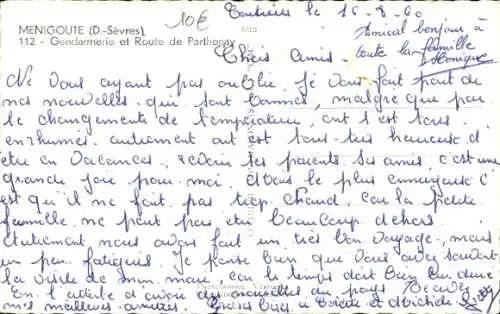 MENIGOUTE (D.-Sèvres)
112 - Gendarmerie et Route de Parthenay
10€
le 16-8-60
Amical bonjour à
toute la famille
Monique
Chers Amis.
Ne Vous ayant pas oublié. je Vous fait part de
mes nouvelles qui sont bonnes, malgré que par
le changements de température, ont s'est tous
enrhumés. autrement ont est tous très heureux d'
être en Vacances, revoir ses parents ses amis. c'est un
grande joie pour moi. Mais le plus ennuyeux c'
est qu'il ne fait pas trop chaud, car la petite
famille ne peut pas être beaucoup dehors
Autrement nous avons fait un très bon voyage, mais
un peu fatigués. Je pense bien que Vous avez souvent
la visite de mon mari, car le temps doit bien lui durer
En l'attente d'avoir des nouvelles du pays Recevez
mes meilleures amitiés. Gros bises à et Michèle